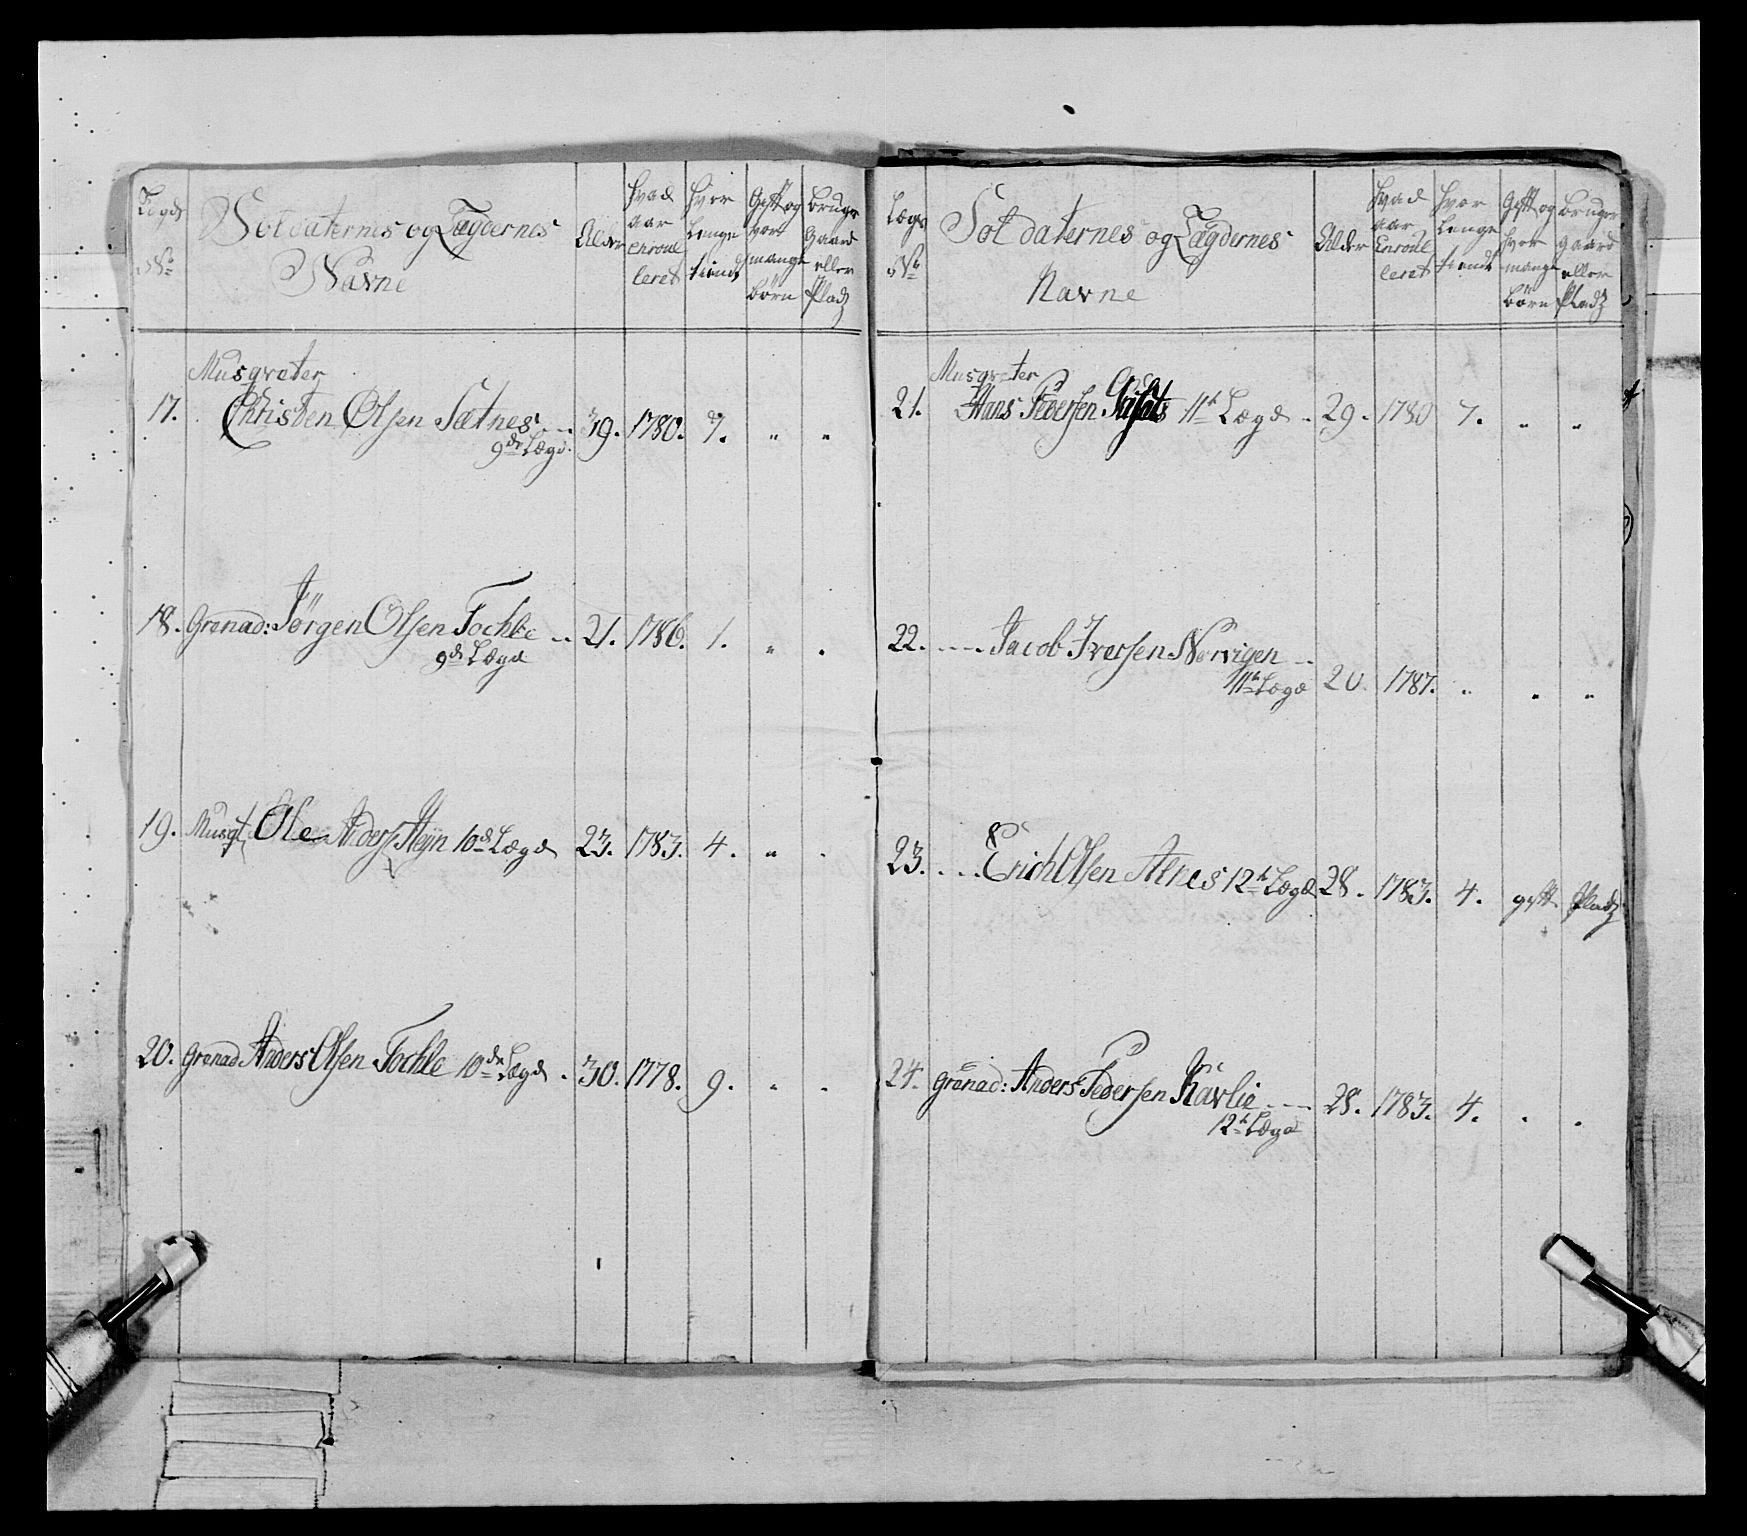 Lægds No
Soldaternes og Lægdernes
Navne
Alder
hvad
aar
Enroul
leret
hvor
lenge
tient
Gyft og
hvor
mange
børn
bruger
Gaard
eller
Pladz
Musqveter
17. Christen Olsen Sætnes 39. 1780. 7. " "
9de Lægd.
18. Grenad: Jørgen Olsen Tochle 21. 1786. 1. " .
9de Lægd
19. Musqt Ole Anders: 10de Lægd 23. 1783. 4. " .
20. Grenad Anders Olsen Tochle 10de Lægd. 30. 1778. 9. . .
Lægds No
Soldaternes og Lægdernes
Navne
Alder
hvad
aar
Enroul
leret
hvor
lenge
tiendt
Gyft og
hvor
mange
børn
bruger
gaard
eller
Pladz
Musqveter
21. Hans Pedersen 11te Lægd 29. 1780 7. " "
22. Jacob Iversen Norvigen
11te Lægd 20. 1787. " " "
23. Erich Olsen Alnes 12te Lægd 28. 1783. 4. gyft Pladz
24. Grenad: Anders Pedersen Kavlie 28. 1783. 4. . .
12te Lægd